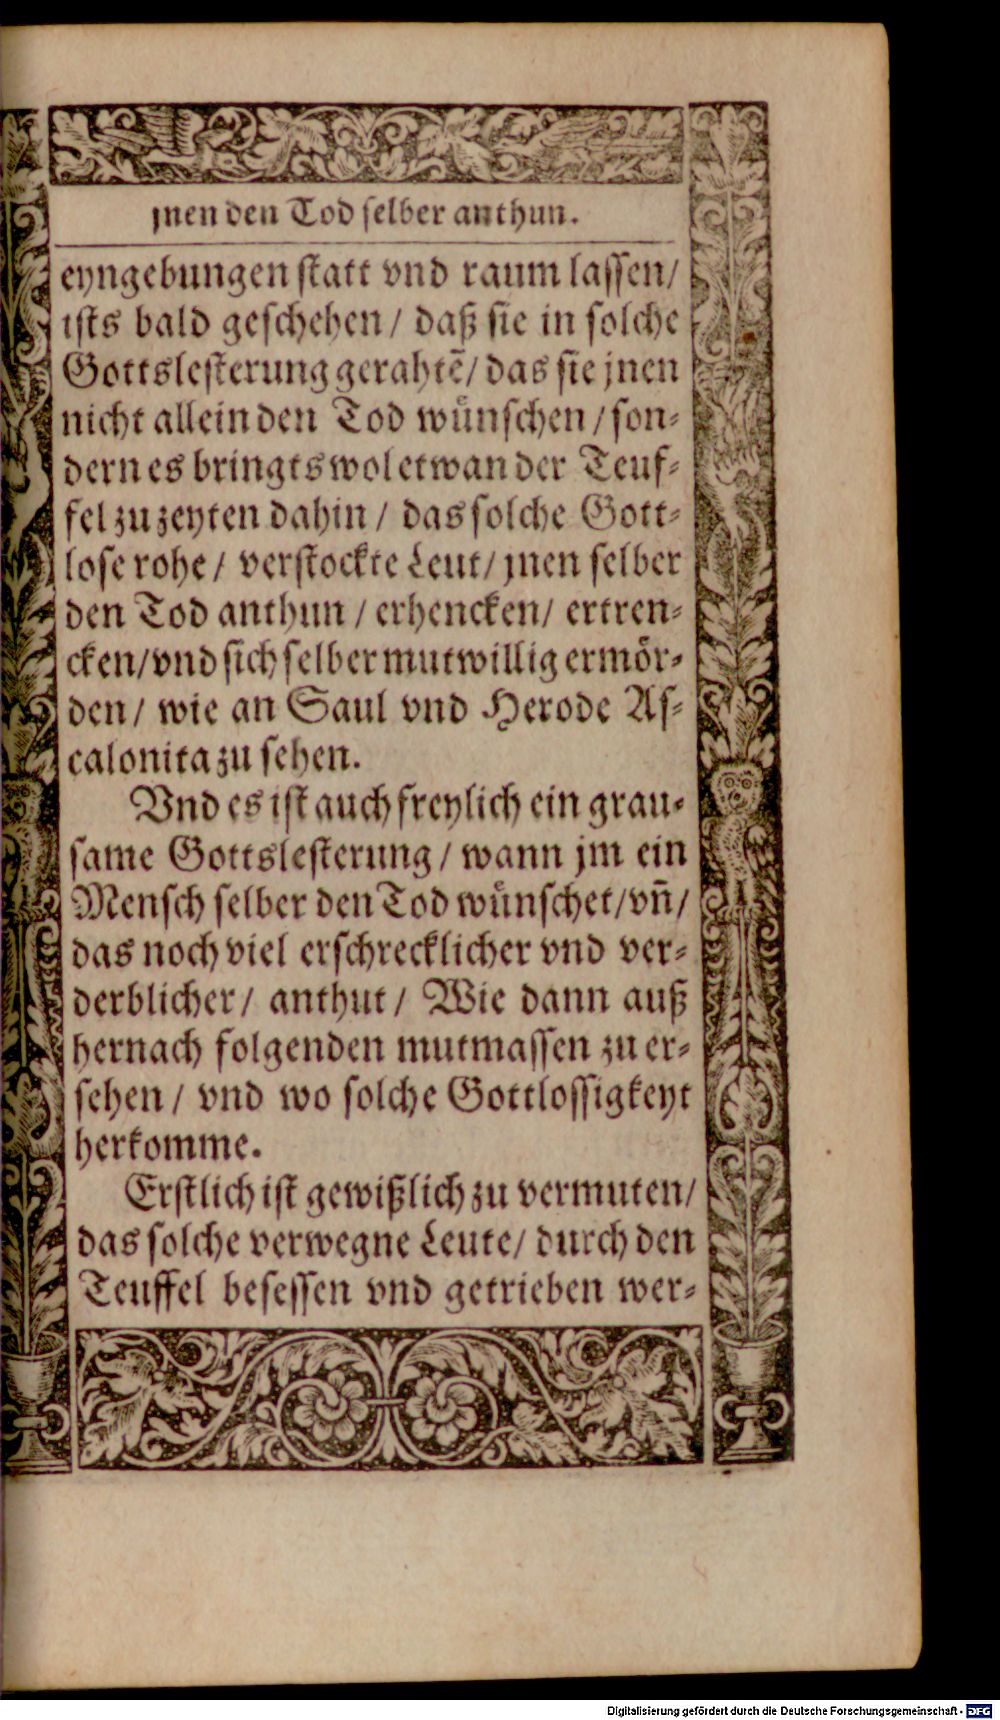 jnen den Tod selber anthun.
eyngebungen statt vnd raum lassen/
ists bald geschehen/ daß sie in solche
Gottslesterung gerahtẽ/ das sie jnen
nicht allein den Tod wuͤnschen/ son⸗
dern es bringts wol etwan der Teuf⸗
fel zu zeyten dahin/ das solche Gott⸗
lose rohe/ verstockte Leut/ jnen selber
den Tod anthun/ erhencken/ ertren⸗
cken/ vnd sich selber mutwillig ermoͤr⸗
den/ wie an Saul vnd Herode As⸗
calonita zu sehen.
Vnd es ist auch freylich ein grau⸗
same Gottslesterung/ wann jm ein
Mensch selber den Tod wuͤnschet/ vñ/
das noch viel erschrecklicher vnd ver⸗
derblicher/ anthut/ Wie dann auß
hernach folgenden mutmassen zu er⸗
sehen/ vnd wo solche Gottlossigkeyt
herkomme.
Erstlich ist gewißlich zu vermuten/
das solche verwegne Leute/ durch den
Teuffel besessen vnd getrieben wer⸗
Digitalisierung gefördert durch die Deutsche Forschungsgemeinschaft - DFG